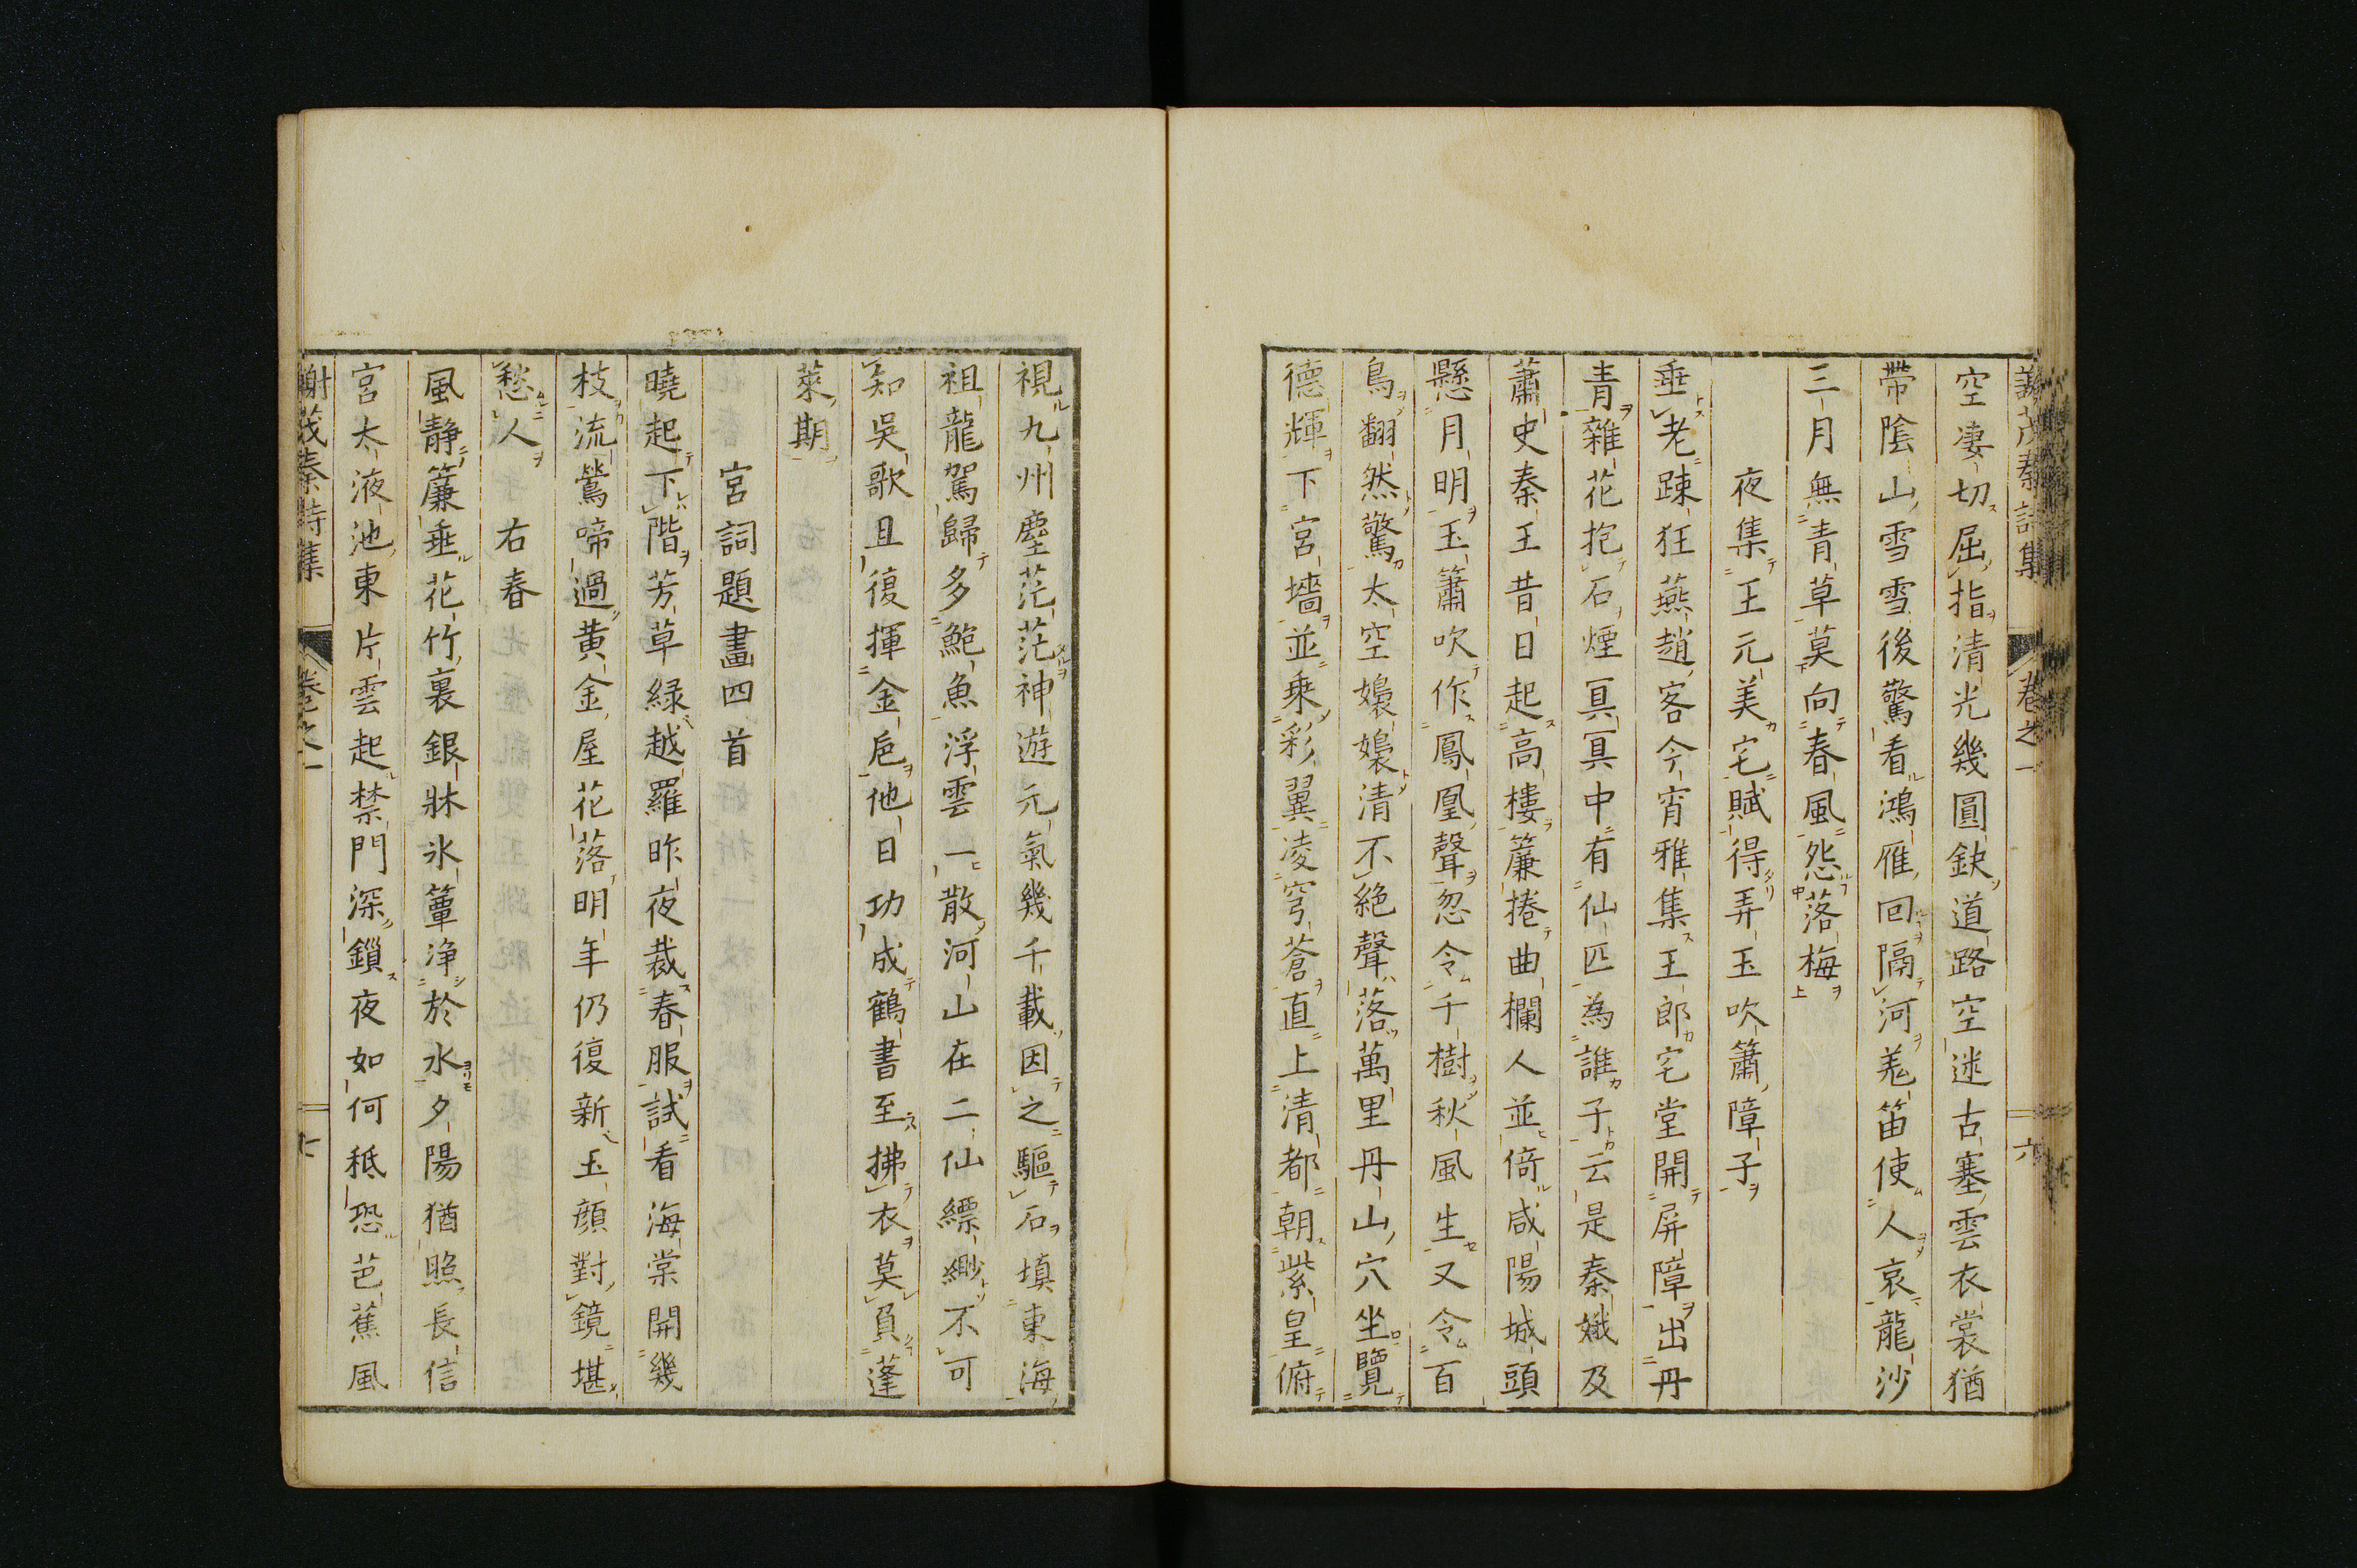 謝茂秦詩集 卷之一 六
空凄切屈指清光幾圓缺道路空迷古塞雲衣裳猶
帶陰山雪雪後驚看鴻雁回隔河羗笛使人哀龍沙
三月無青草莫向春風怨落梅
夜集王元美宅賦得弄玉吹簫障子
垂老踈狂燕趙客今宵雅集王郎宅堂開屏障出丹
青雜花抱石煙冥冥中有仙匹為誰子云是秦娥及
蕭史秦王昔日起高樓簾捲曲欄人並倚咸陽城頭
懸月明玉簫吹作鳳凰聲忽令千樹秋風生又令百
鳥翻然驚太空嬝嬝清不絕聲落萬里丹山穴坐覽
德輝下宮墻並乘彩翼凌穹蒼直上清都朝紫皇俯
視九州塵茫茫神遊元氣幾千載因之驅石填東海
祖龍駕歸多鮑魚浮雲一散河山在二仙縹緲不可
知吳歌且復揮金巵他日功成鶴書至拂衣莫負蓬
萊期
宮詞題畫四首
曉起下階芳草緑越羅昨夜裁春服試看海棠開幾
枝流鶯啼過黄金屋花落明年仍復新玉顔對鏡堪
愁人 右春
風静簾垂花竹裏銀牀氷簟浄於水夕陽猶照長信
宮太液池東片雲起禁門深鎖夜如何秖恐芭蕉風
謝茂秦詩集 卷之一 七